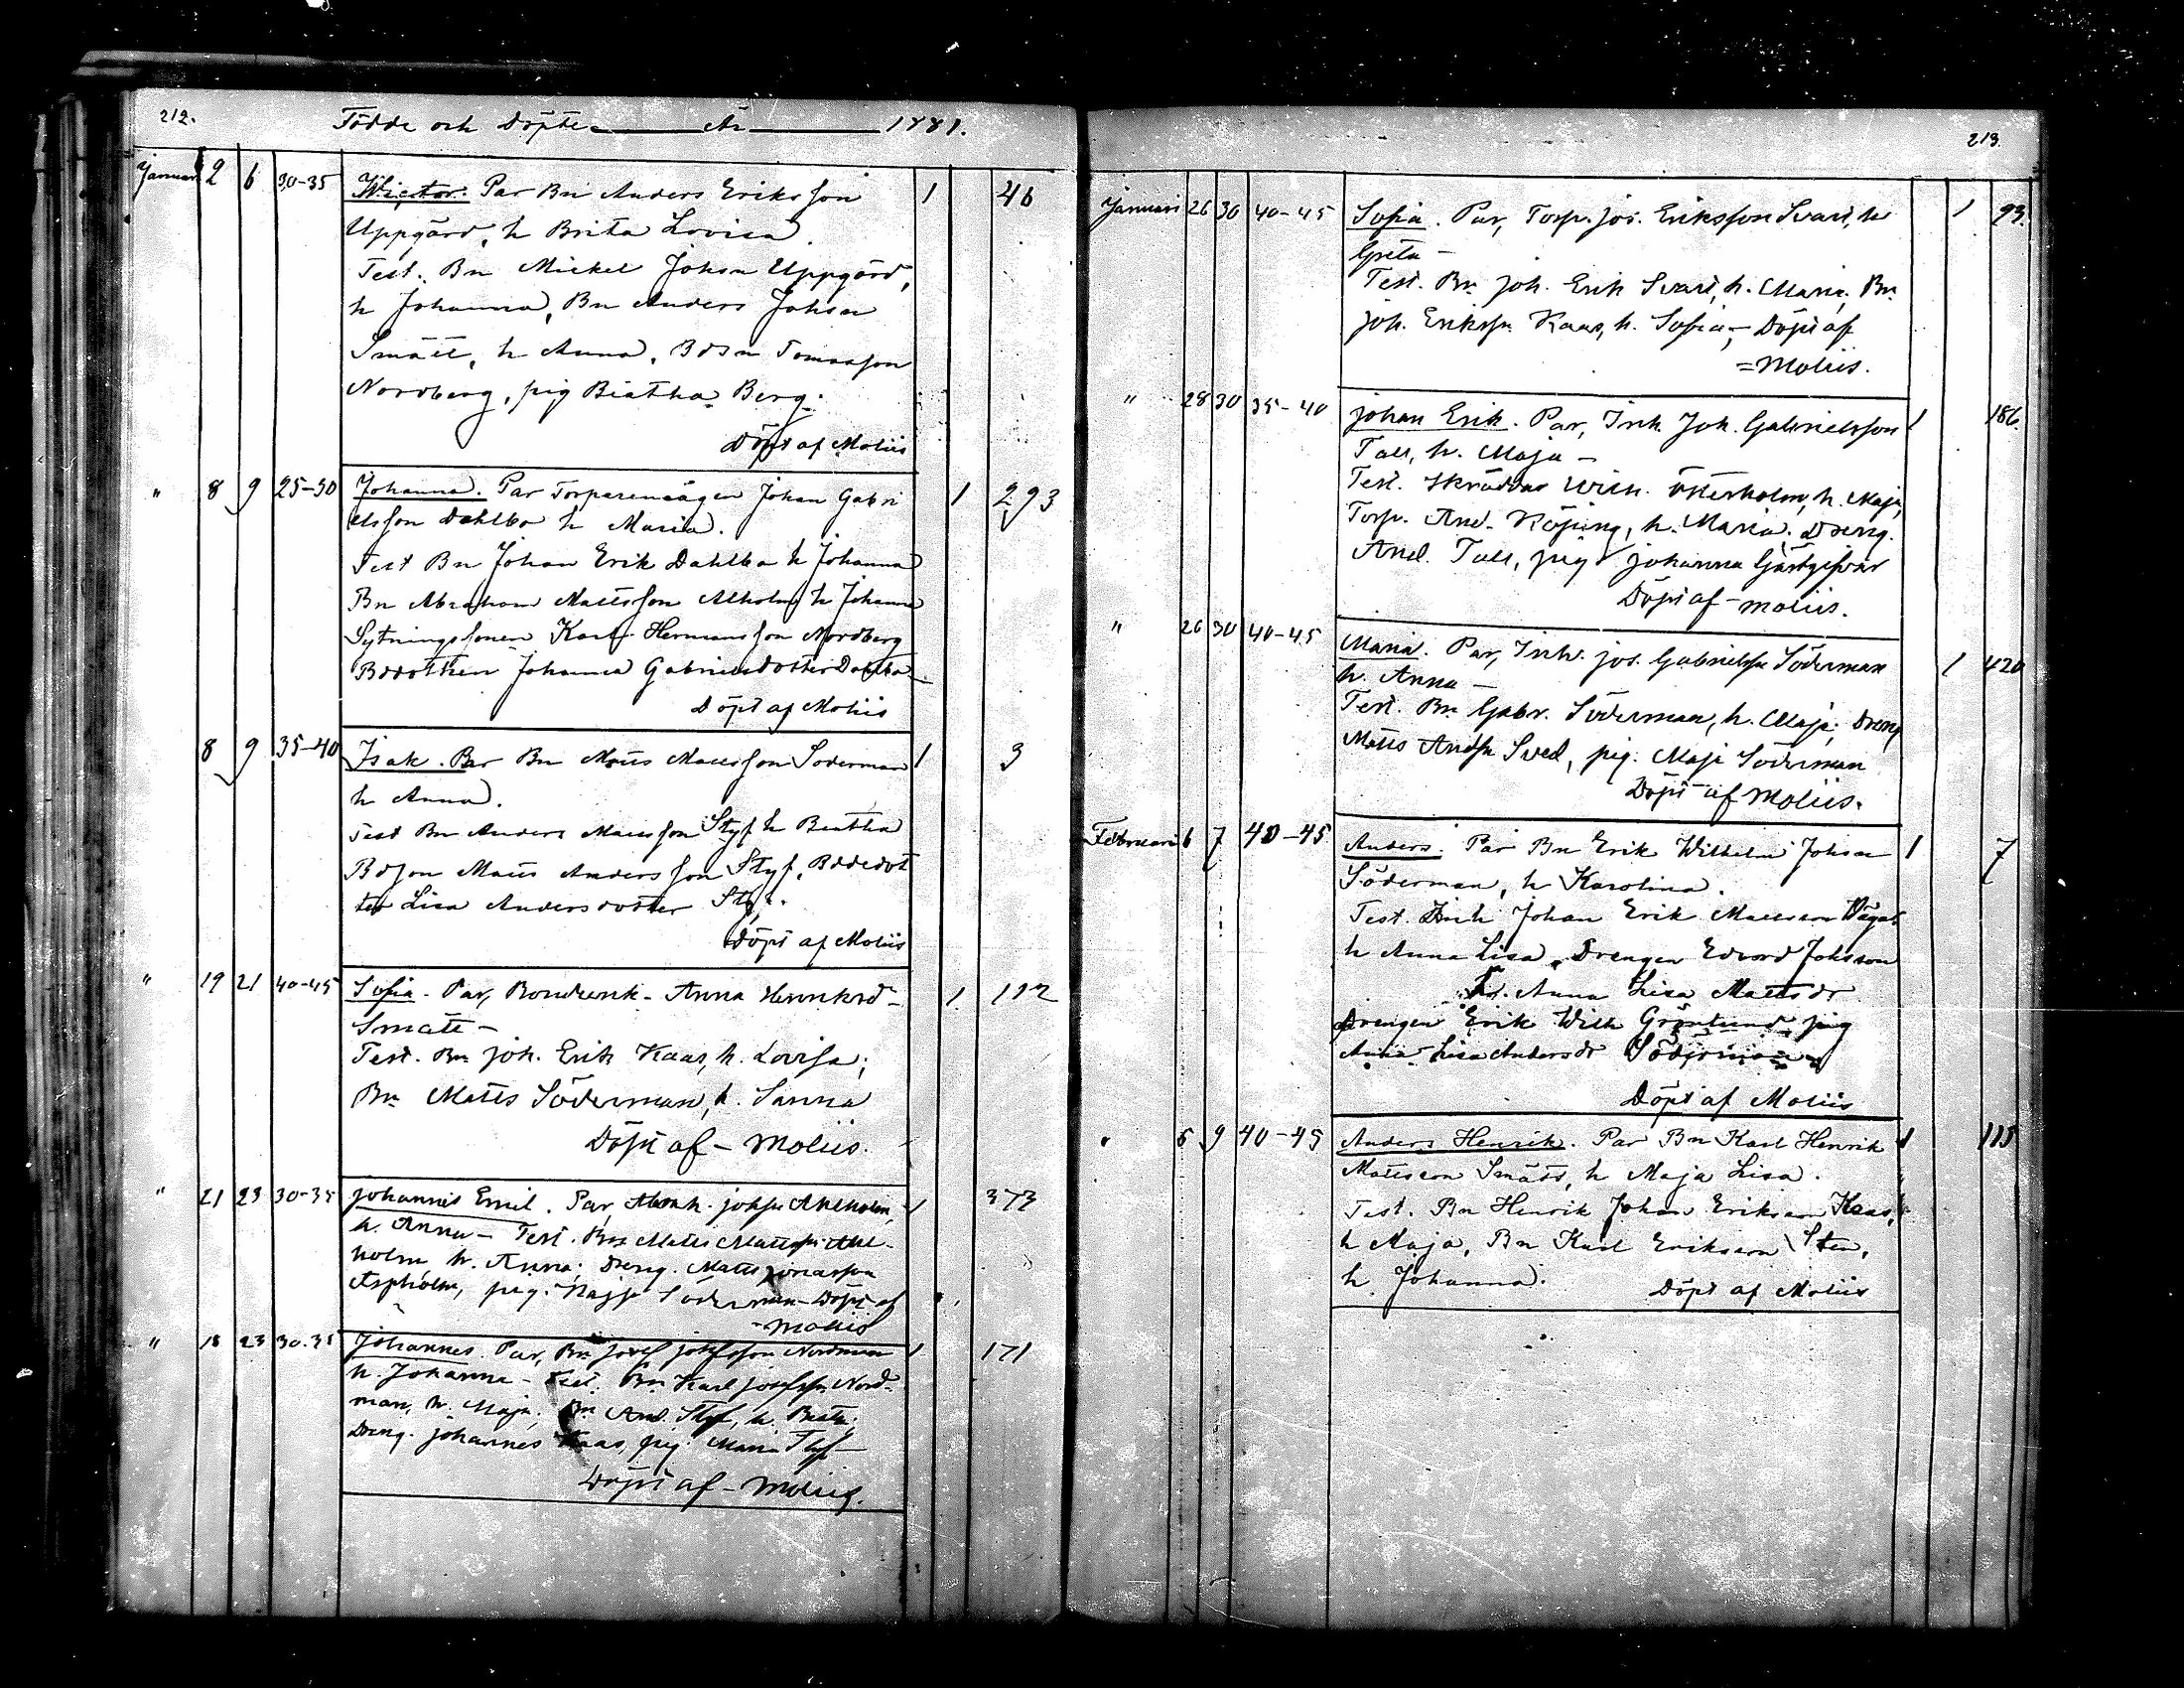 212.
Födde och Döpte År 1881.
Januari 2 6 30-35 Wictor. Par Bn Anders Eriksson 1 46
Uppgård, h Brita Lovisa.
Test. Bn Mickel Johsn Uppgård,
h Johanna, Bn Anders Johsn
Smått, h Anna, Bdsn Tomasson
Nordberg, pig Beatha Berg.
Döpt af Moliis
" 8 9 25-30 Johanna. Par Torparemågen Johan Gabri 1 293
elsson Dahlbo h Maria.
Test Bn Johan Erik Dahlbo h Johanna
Bn Abraham Mattsson Alholm h Johanna
Sytningssonen Karl Hermansson Nordberg
Bdotthen Johanna Gabrielsdotter Dahlbo
Döpt af Moliis
8 9 35-40 Isak. Par Bn Matts Mattsson Söderman 1 3
h Anna.
Test Bn Anders Mattsson Styf h Beatha
Bdson Matts Andersson Styf, Bdedot
ter Lisa Andersdotter Styf.
Döpt af Moliis
" 19 21 40-45 Sofia. Par, Bondeenk. Anna Henriksd- 1 112
Smått -
Test. Bn Joh. Erik Kaas, h. Lovisa;
Bn Matts Söderman, h. Sanna
Döpt af - Moliis.
" 21 23 30-35 Johannes Emil. Par, Johsn Ahlholm, 1 373
h. Anna - Test. Bn Matts Mattss. Ahl-
holm h. Anna; Dreng. Matts Jonasson
Aspholm, pig. Kajsa Söderman - Döpt af
- Moliis
" 18 23 30-35 Johannes. Par, Bn Josef Josefsson Nordman 1 171
h. Johanna - Test. Bn Karl Josefsn Nord-
man, h. Maja; Bn And. Styf, h. Beata;
Dreng. Johannes Kaas, pig. Maria Styf -
Döpt af - Moliis.
213.
Januari 26 30 40-45 Sofia. Par, Torp. Jos. Eriksson Svart, h 1 93.
Greta -
Test. Bn Joh. Erik Svart, h. Maria; Bn
Joh. Erikssn Kaas, h. Sofia, - Döpt af
= Moliis.
" 28 30 35-40 Johan Erik. Par, Inh. Joh. Gabrielsson 1 186.
Tall, h. Maja -
Test. Skräddar Wilh. Österholm, h. Maja,
Torp. And. Köping, h. Maria; Dreng.
And. Tall, pig Johanna Gästgifvar
Döpt af - Moliis.
" 26 30 40-45 Maria. Par, Inh. Jos. Gabrielssn Söderman 1 420
h. Anna -
Test. Bn Gabr. Söderman, h. Maja; Dreng
Matts Andsn Sved, pig. Maja Söderman
Döpt af Moliis.
Februari 6 7 40-45 Anders. Par Bn Erik Wilhelm Johsn 1 7
Söderman, h Karolina.
Test. Inh Johan Erik Mattsson
h Anna Lisa, Drengen Edvard Johsson
Anna Lisa Mattsdr
Drengen Erik Wilh Grönlund, pig
Anna Lisa Andersdr Söderman
Döpt af Moliis
" 5 9 40-45 Anders Henrik. Par Bn Karl Henrik 1 115
Mattsson Smått, h Maja Lisa.
Test. Bn Henrik Johan Eriksson Kaas,
h Maja, Bn Karl Eriksson Sten,
h. Johanna. Döpt af Moliis